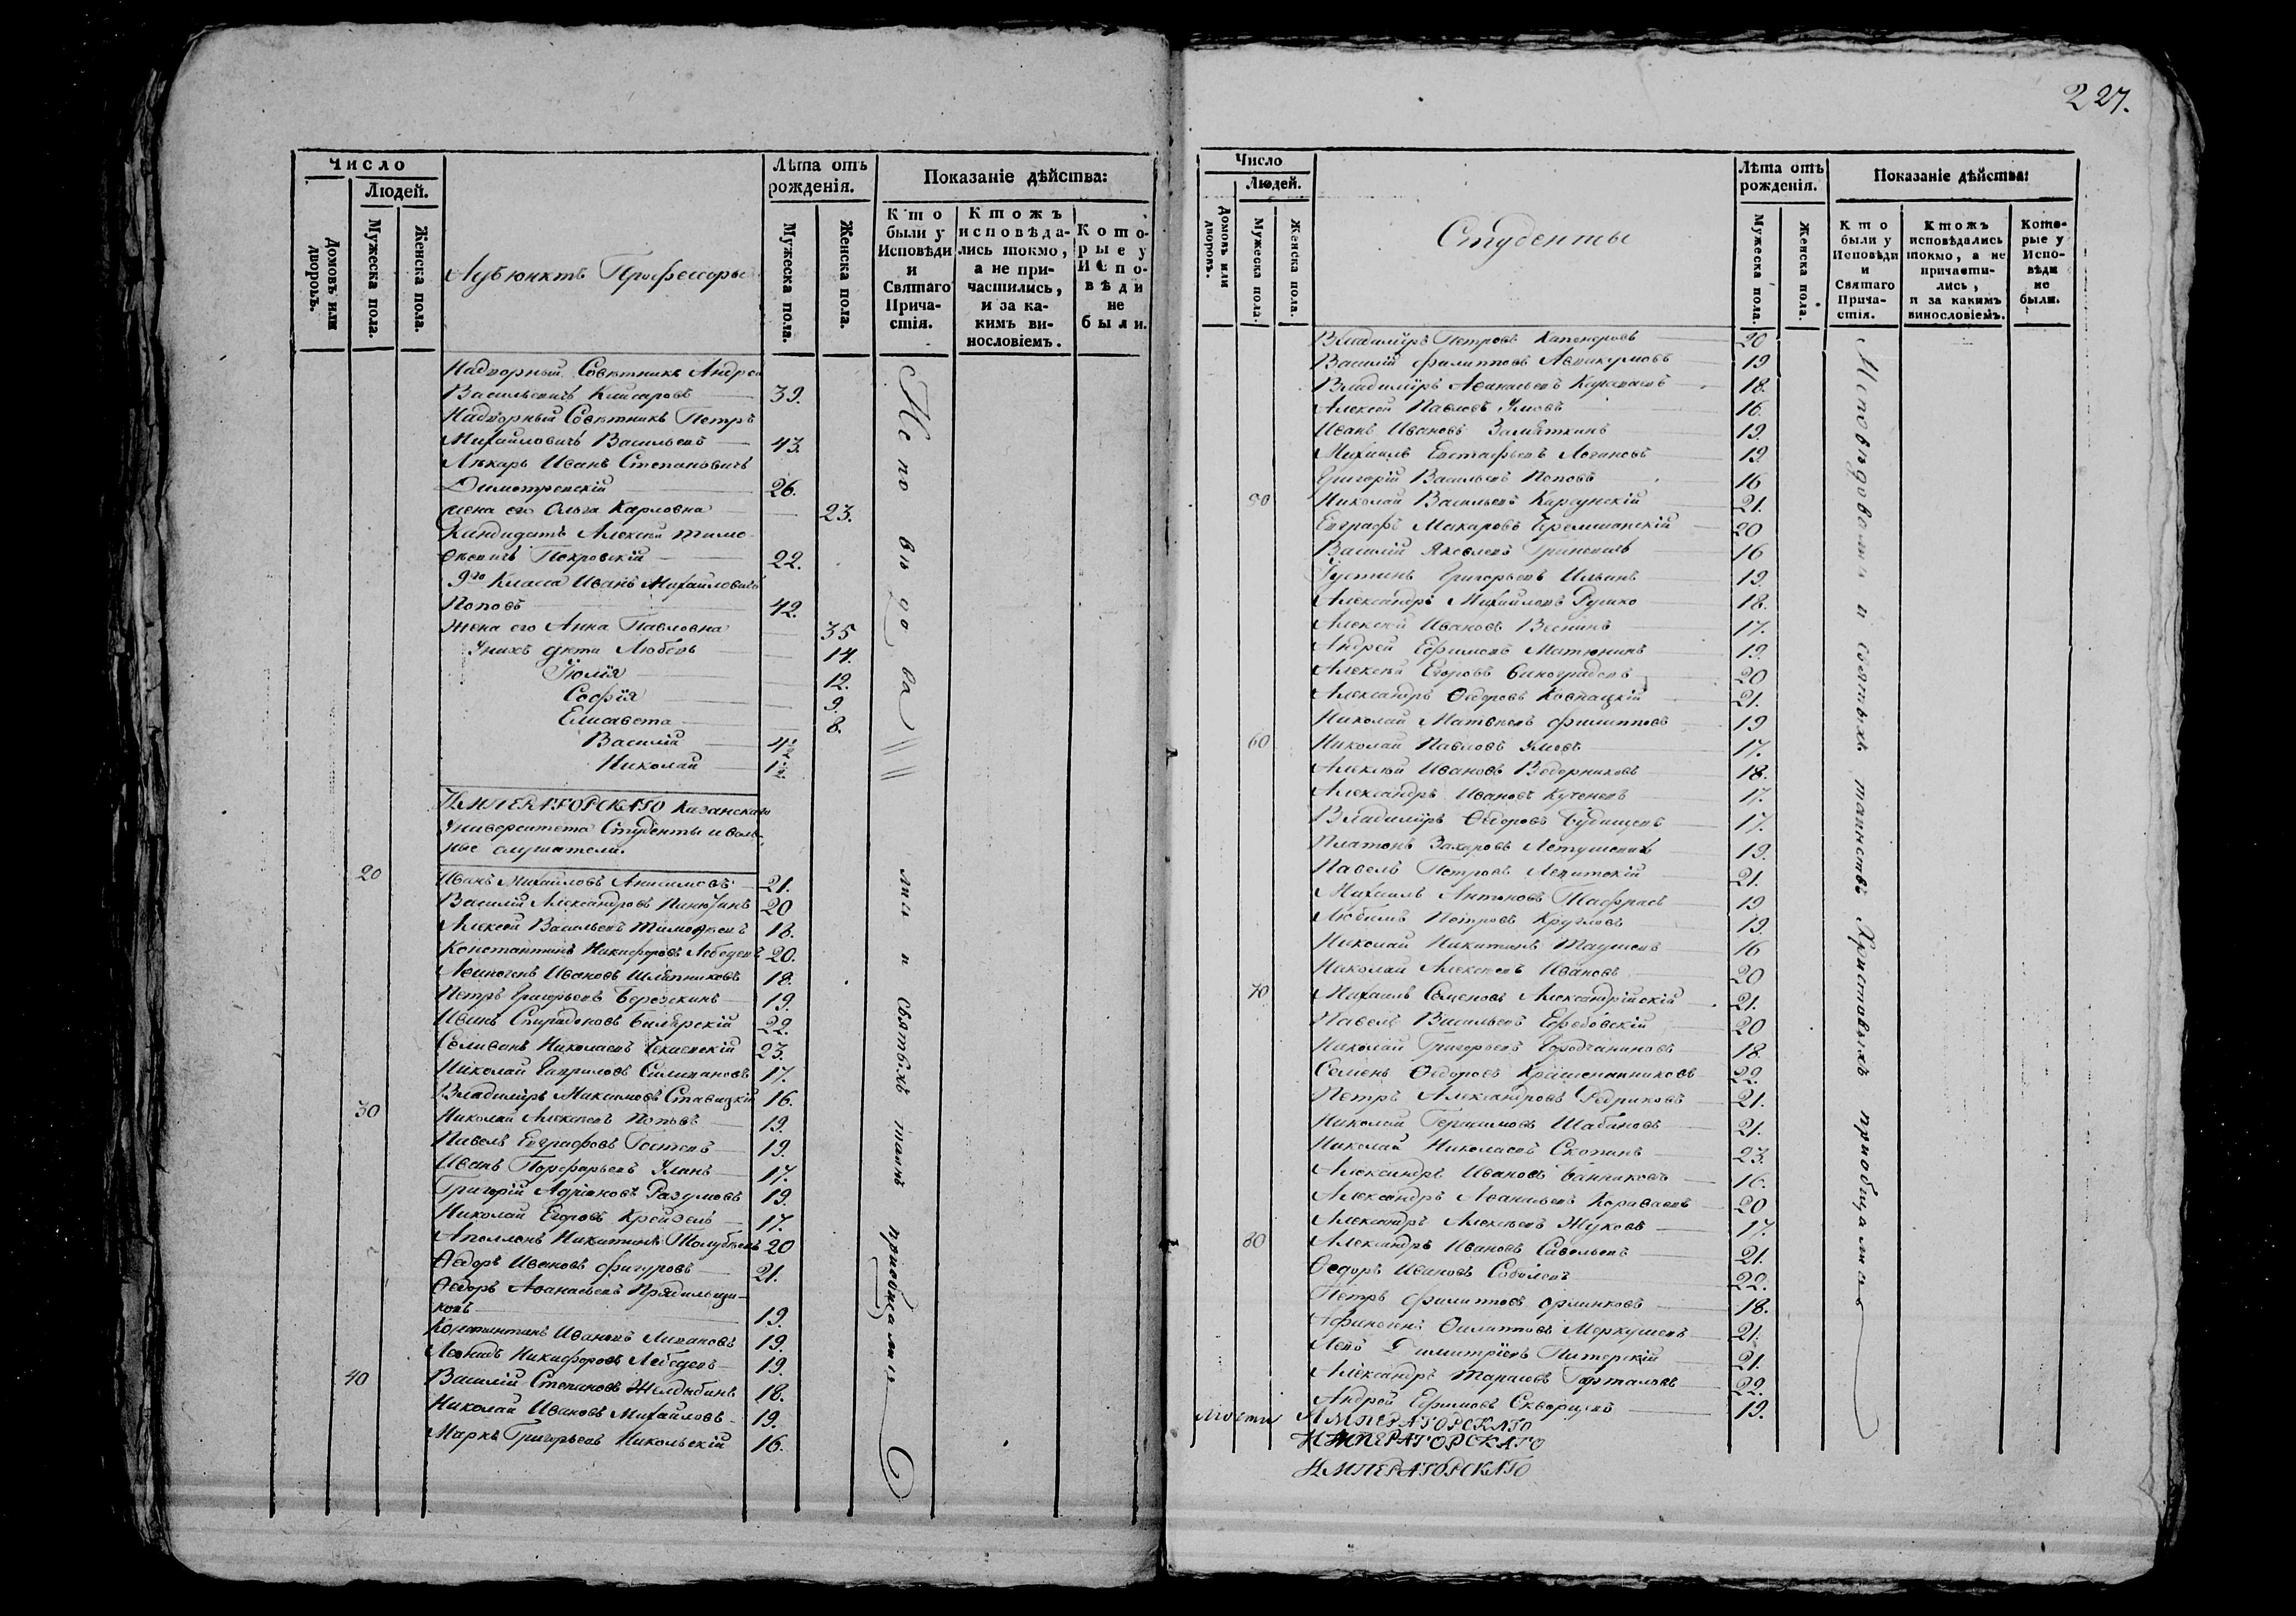 Число
Людей.
Домовъ или дворовъ.
Мужеска пола.
Женска пола.
Адъюнктъ Профессоры
Лѣта отъ рожденія.
Мужеска пола.
Женска пола.
Показаніе дѣйства:
Кто были у Исповѣди и Святаго Причастія.
Ктожъ исповѣдались токмо, а не причастились, и за какимъ винословіемъ.
Которые у Исповѣди не были.
Надворный Совѣтникъ Андрей
Васильевичъ Кайсаровъ 39.
Надворный Совѣтникъ Петръ
Михайловичъ Васильевъ 43.
Лѣкарь Иванъ Степановичъ
Димитревскій 26.
жена его Ольга Карловна 23.
Кандидатъ Алексѣй Тимо
ѳеевичъ Покровскій 22.
9го Класса Иванъ Михайловичъ
Поповъ 42.
Жена его Анна Павловна 35
У нихъ дѣти Любовь 14.
Юлія 12.
Софія 9.
Елисавета 8.
Василій 4½
Николай 1½.
ИМПЕРАТОРСКАГО Казанскаго
Университета Студенты и воль-
ные слушатели.
20 Иванъ Михайловъ Анисимовъ 21.
Василій Александровъ 20
Алексѣй Васильевъ Тимоѳеевъ 18.
Константинъ Никифоровъ Лебедевъ 20.
Аѳиногенъ Ивановъ Шляпниковъ 18.
Петръ Григорьевъ Березкинъ 19.
Иванъ Спиридоновъ Билярскій 22.
Селиванъ Николаевъ 23.
Николай Гавриловъ 17.
Владиміръ Максимовъ Ставицкій 16.
30 Николай Алексѣевъ Поповъ 19.
Павелъ Евграфовъ Гостевъ 19.
Иванъ Порфирьевъ 17.
Григорій Адріановъ Разумовъ 19.
Николай Егоровъ 17.
Аполлонъ Никитинъ 20
Ѳедоръ Ивановъ Фигуровъ 21.
Ѳедоръ Аѳанасьевъ Прядильщи-
ковъ 19.
Константинъ Ивановъ 19.
Леонидъ Никифоровъ Лебедевъ 19.
40 Василій Степановъ Желдыбинъ 18.
Николай Ивановъ Михайловъ 19.
Маркъ Григорьевъ Никольскій 16.
Исповѣдовались и святыхъ таинъ приобщались
227.
Число
Людей.
Домовъ или дворовъ.
Мужеска пола.
Женска пола.
Студенты
Лѣта отъ рожденія.
Мужеска пола.
Женска пола.
Показаніе дѣйства:
Кто были у Исповѣди и Святаго Причастія.
Ктожъ исповѣдались токмо, а не причастились, и за какимъ винословіемъ.
Которые у Исповѣди не были.
Владиміръ Петровъ 20
Василій Филипповъ Аввакумовъ 19
Владиміръ Аѳанасьевъ 18.
Алексѣй Павловъ Умовъ 16.
Иванъ Ивановъ Замяткинъ 19.
Михаилъ Евстафьевъ Логиновъ 19.
Григорій Васильевъ Поповъ 16
50 Николай Васильевъ Карсунскій 21.
Евграфъ Макаровъ Черемшанскій 20
Василій Яковлевъ 16
Густинъ Григорьевъ Ильинъ 19.
Александръ Михайловъ 18.
Алексѣй Ивановъ 17.
Андрей Ефимовъ Матюнинъ 19.
Алексѣй Егоровъ Виноградовъ 20
Александръ Ѳедоровъ 21.
Николай Матвѣевъ Филипповъ 19
60 Николай Павловъ Умовъ 17.
Алексѣй Ивановъ Ведерниковъ 18.
Александръ Ивановъ 17.
Владиміръ Ѳедоровъ 17.
Платонъ Захаровъ 19.
Павелъ Петровъ Левитскій 21.
Михаилъ Антоновъ 19
Любимъ Петровъ Кругловъ 19.
Николай Никитинъ 16
Николай Алексѣевъ Ивановъ 20
70 Михаилъ Семеновъ Александрійскій 21.
Павелъ Васильевъ 20
Николай Григорьевъ Городчаниновъ 18.
Семенъ Ѳедоровъ Крашенинниковъ 22.
Петръ Александровъ 21.
Николай Герасимовъ Шабановъ 21.
Николай Николаевъ Скопинъ 23.
Александръ Ивановъ 16.
Александръ Аѳанасьевъ Караваевъ 20
Александръ Алексѣевъ Жуковъ 17.
80 Александръ Ивановъ Савельевъ 21.
Ѳедоръ Ивановъ Соболевъ 22.
Петръ Филипповъ 18.
Афиногенъ Филипповъ Меркушевъ 21.
Левъ Димитріевъ Питерскій 21.
Александръ Тарасовъ 22.
Андрей Ефимовъ Скворцовъ 19.
ИМПЕРАТОРСКАГО
ИМПЕРАТОРСКАГО
ИМПЕРАТОРСКАГО
Исповѣдовались и святыхъ таинствъ Христовыхъ приобщались